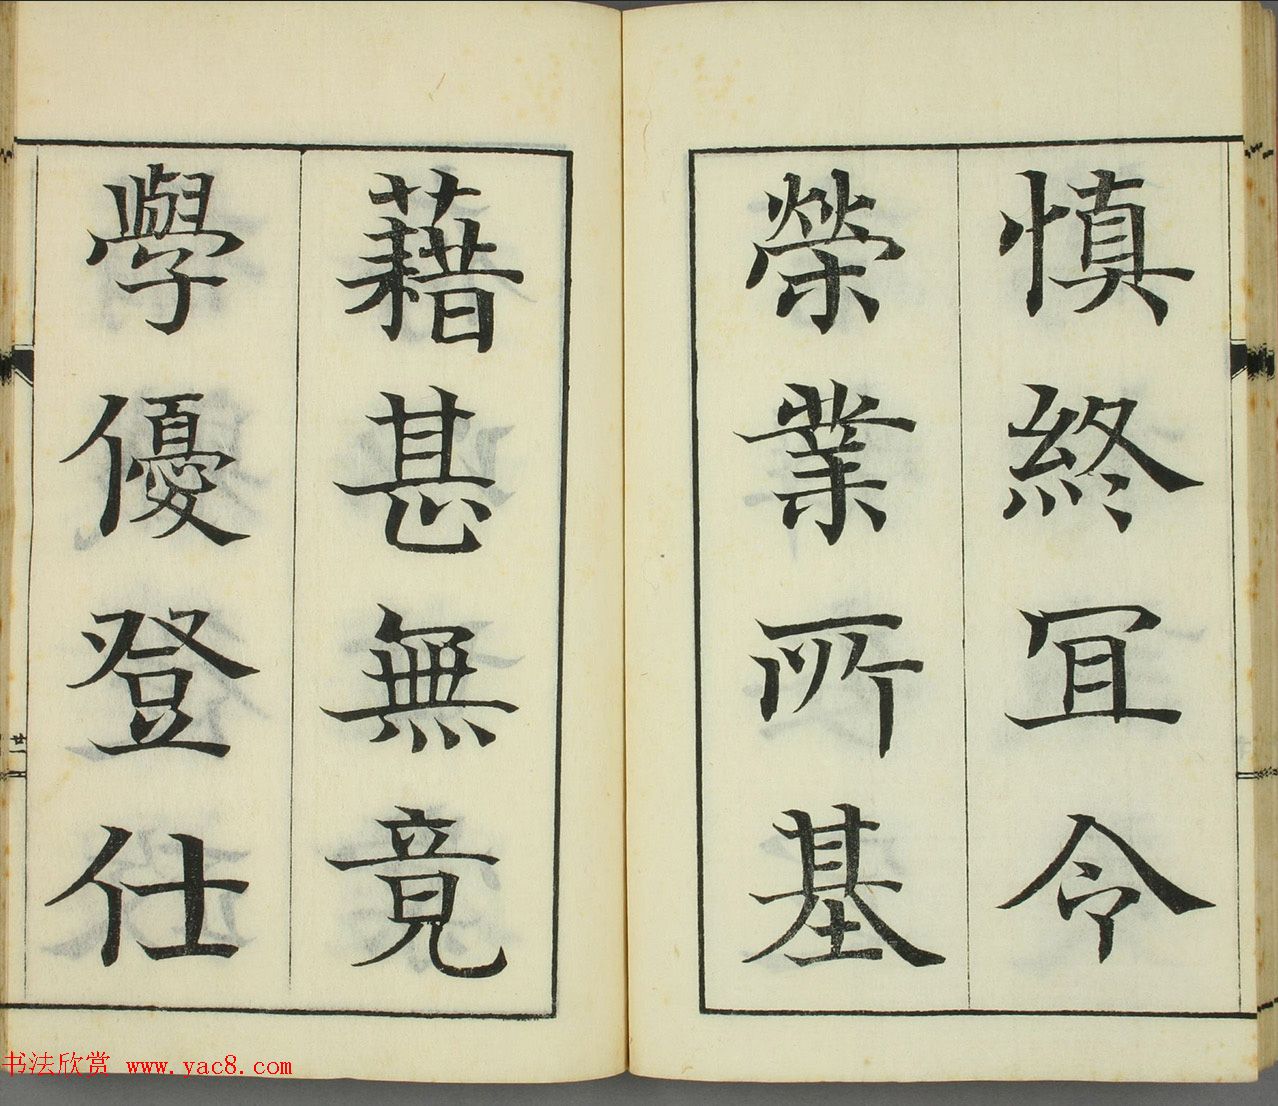 慎終冝令
榮業所基
藉甚無竟
學優登仕
廿一
书法欣赏 www.yac8.com